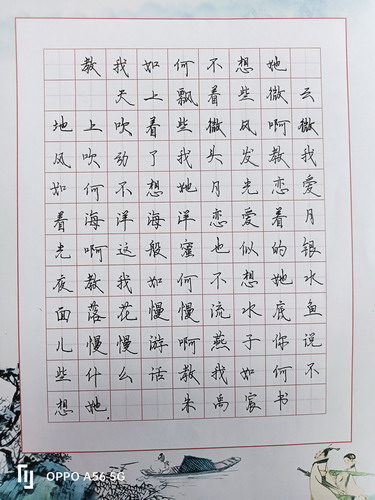 教我如何不想她
天上飘着些微云
地上吹着些微风啊微
风吹动了我头发教我
如何不想她月光恋爱
着海洋海洋恋爱着月
光啊这般蜜也似的银
夜教我如何不想她水
面落花慢慢流水底鱼
儿慢慢游啊燕子你说
些什么话教我如何不
想她. 朱禹宸书
OPPO A56 5G